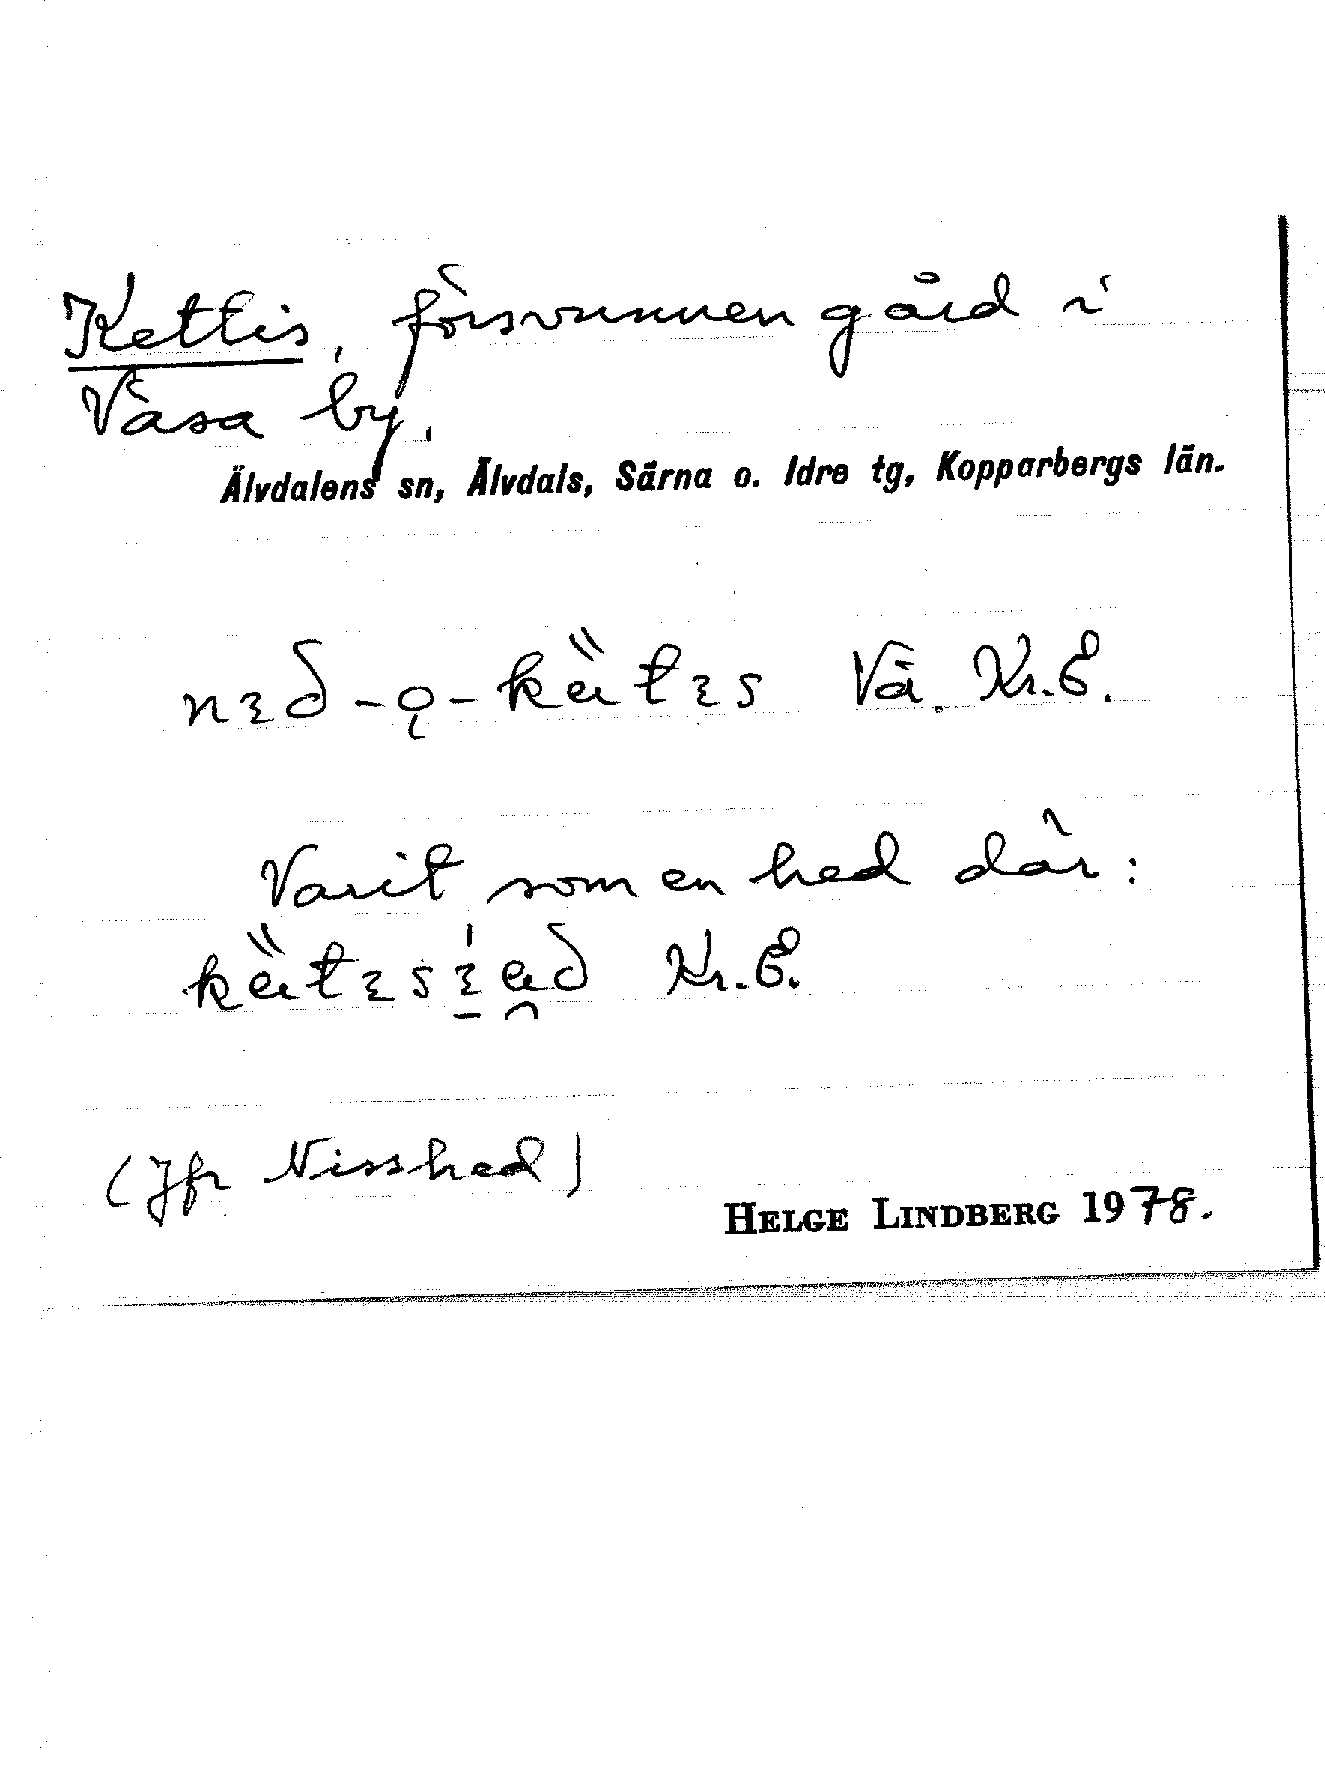 Kettis, försvunnen gård i
Väsa by.
Älvdalens sn, Älvdals, Särna o. Idre tg, Kopparbergs län.
Vä. Kr.E.
Varit som en hed där:
Kr.E.
(Jfr Nisshed)
HELGE LINDBERG 1978.